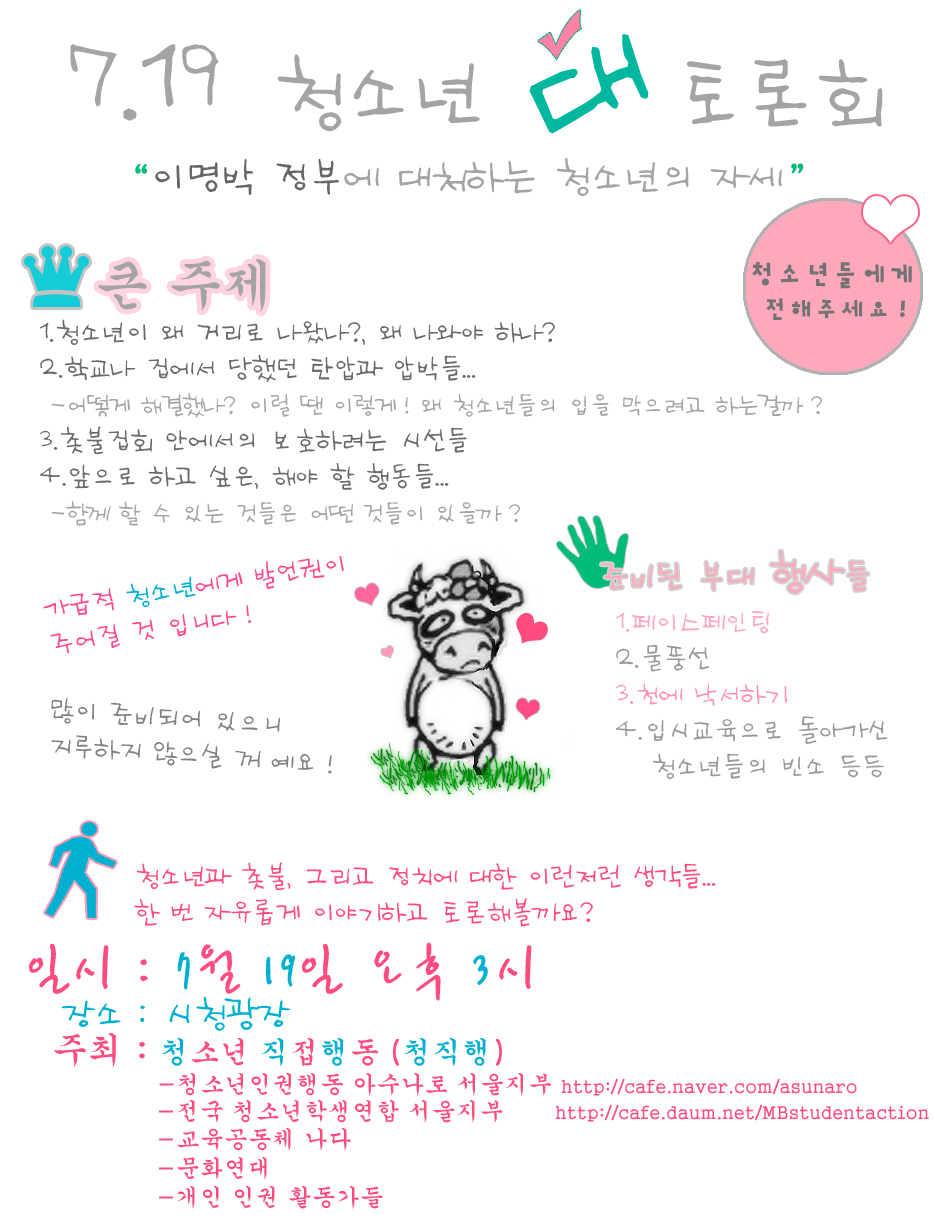 7.19 청소년 대 토론회
“이명박 정부에 대처하는 청소년의 자세”
청소년들에게
전해주세요!
큰 주제
1.청소년이 왜 거리로 나왔나?, 왜 나와야 하나?
2.학교나 집에서 당했던 탄압과 압박들...
-어떻게 해결했나? 이럴 땐 이렇게! 왜 청소년들의 입을 막으려고 하는걸까?
3.촛불집회 안에서의 보호하려는 시선들
4.앞으로 하고 싶은, 해야 할 행동들...
-함께 할 수 있는 것들은 어떤 것들이 있을까?
가급적 청소년에게 발언권이
주어질 것 입니다!
많이 준비되어 있으니
지루하지 않으실 거 예요!
준비된 부대 행사들
1.페이스페인팅
2.물풍선
3.천에 낙서하기
4.입시교육으로 돌아가신
청소년들의 빈소 등등
청소년과 촛불, 그리고 정치에 대한 이런저런 생각들...
한 번 자유롭게 이야기하고 토론해볼까요?
일시 : 7월 19일 오후 3시
장소 : 시청광장
주최 : 청소년 직접행동 (청직행)
-청소년인권행동 아수나로 서울지부 http://cafe.naver.com/asunaro
-전국 청소년학생연합 서울지부 http://cafe.daum.net/MBstudentaction
-교육공동체 나다
-문화연대
-개인 인권 활동가들